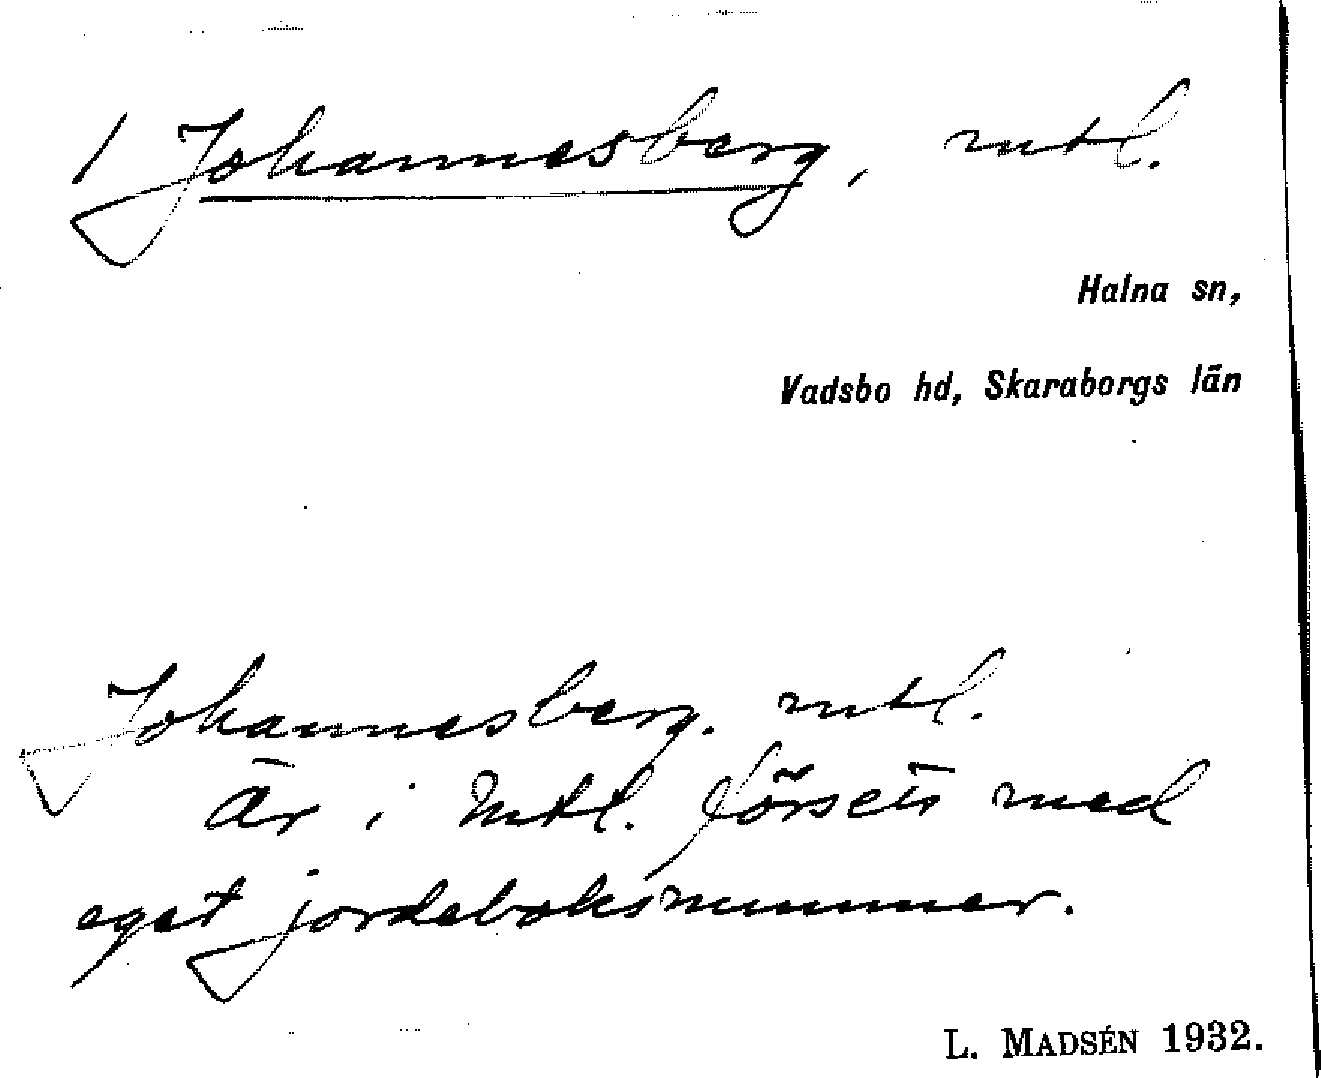 / Johannesberg, mtl.
Halna sn,
Vadsbo hd, Skaraborgs län
Johannesberg. mtl.
Är i Mtl. försett med
eget jordeboksnummer.
L. MADSÉN 1932.